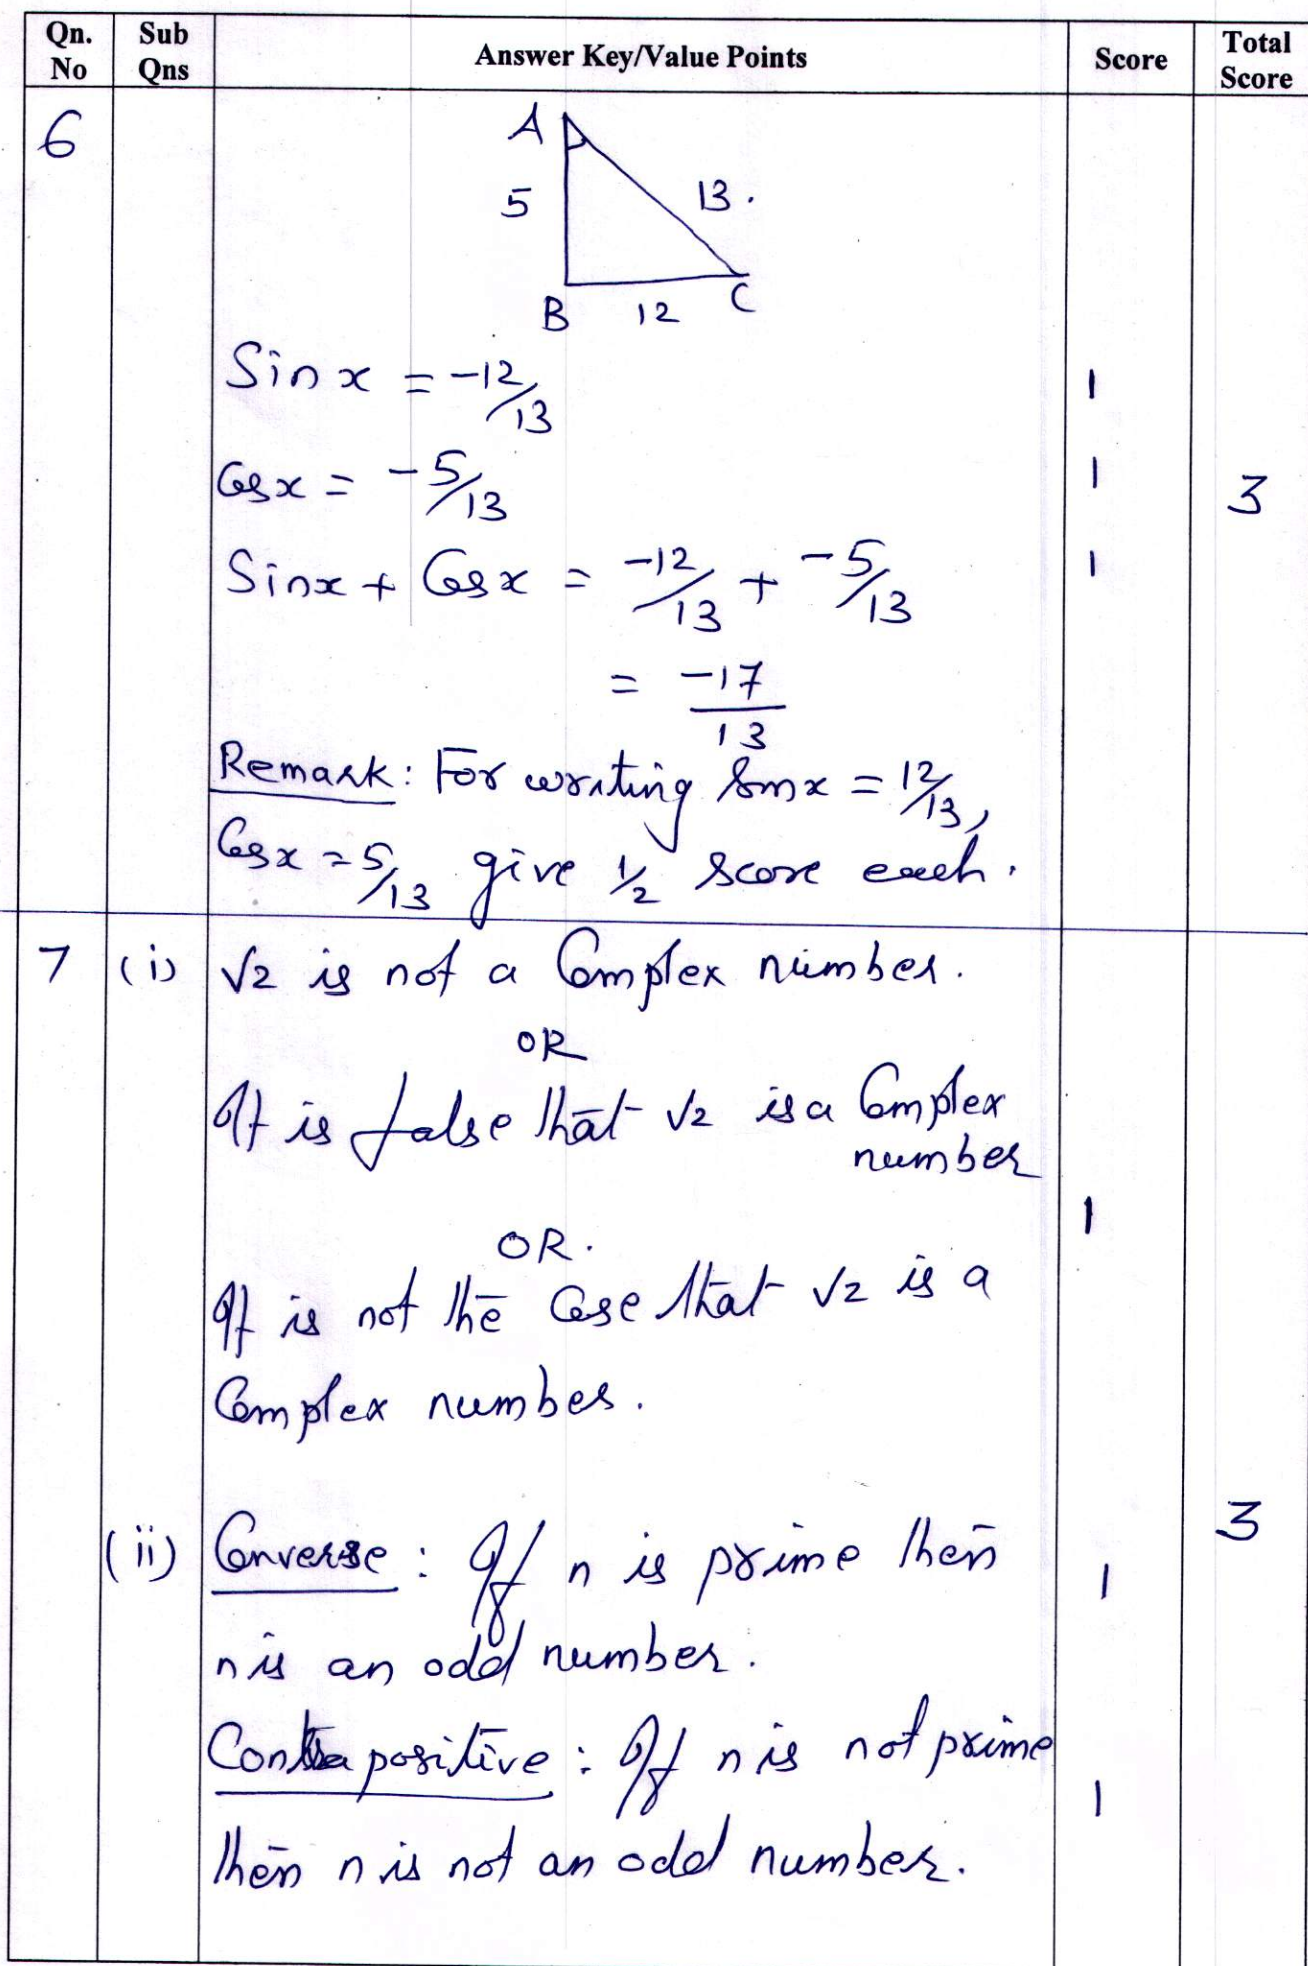 Qn. No Sub Qns Answer Key/Value Points Score Total Score
6
A
5 13.
B 12 C
Sin x = -12/13 1
Cos x = -5/13 1 3
Sinx + Cos x = -12/13 + -5/13 1
= -17/13
Remark: For writing Sin x = 12/13,
Cos x = 5/13 give 1/2 score each.
7 (i) √2 is not a Complex number.
OR
It is false that √2 is a Complex
number
1
OR.
It is not the Case that √2 is a
Complex number.
3
(ii) Converse: If n is prime then 1
n is an odd number.
Contrapositive: If n is not prime
1
then n is not an odd number.